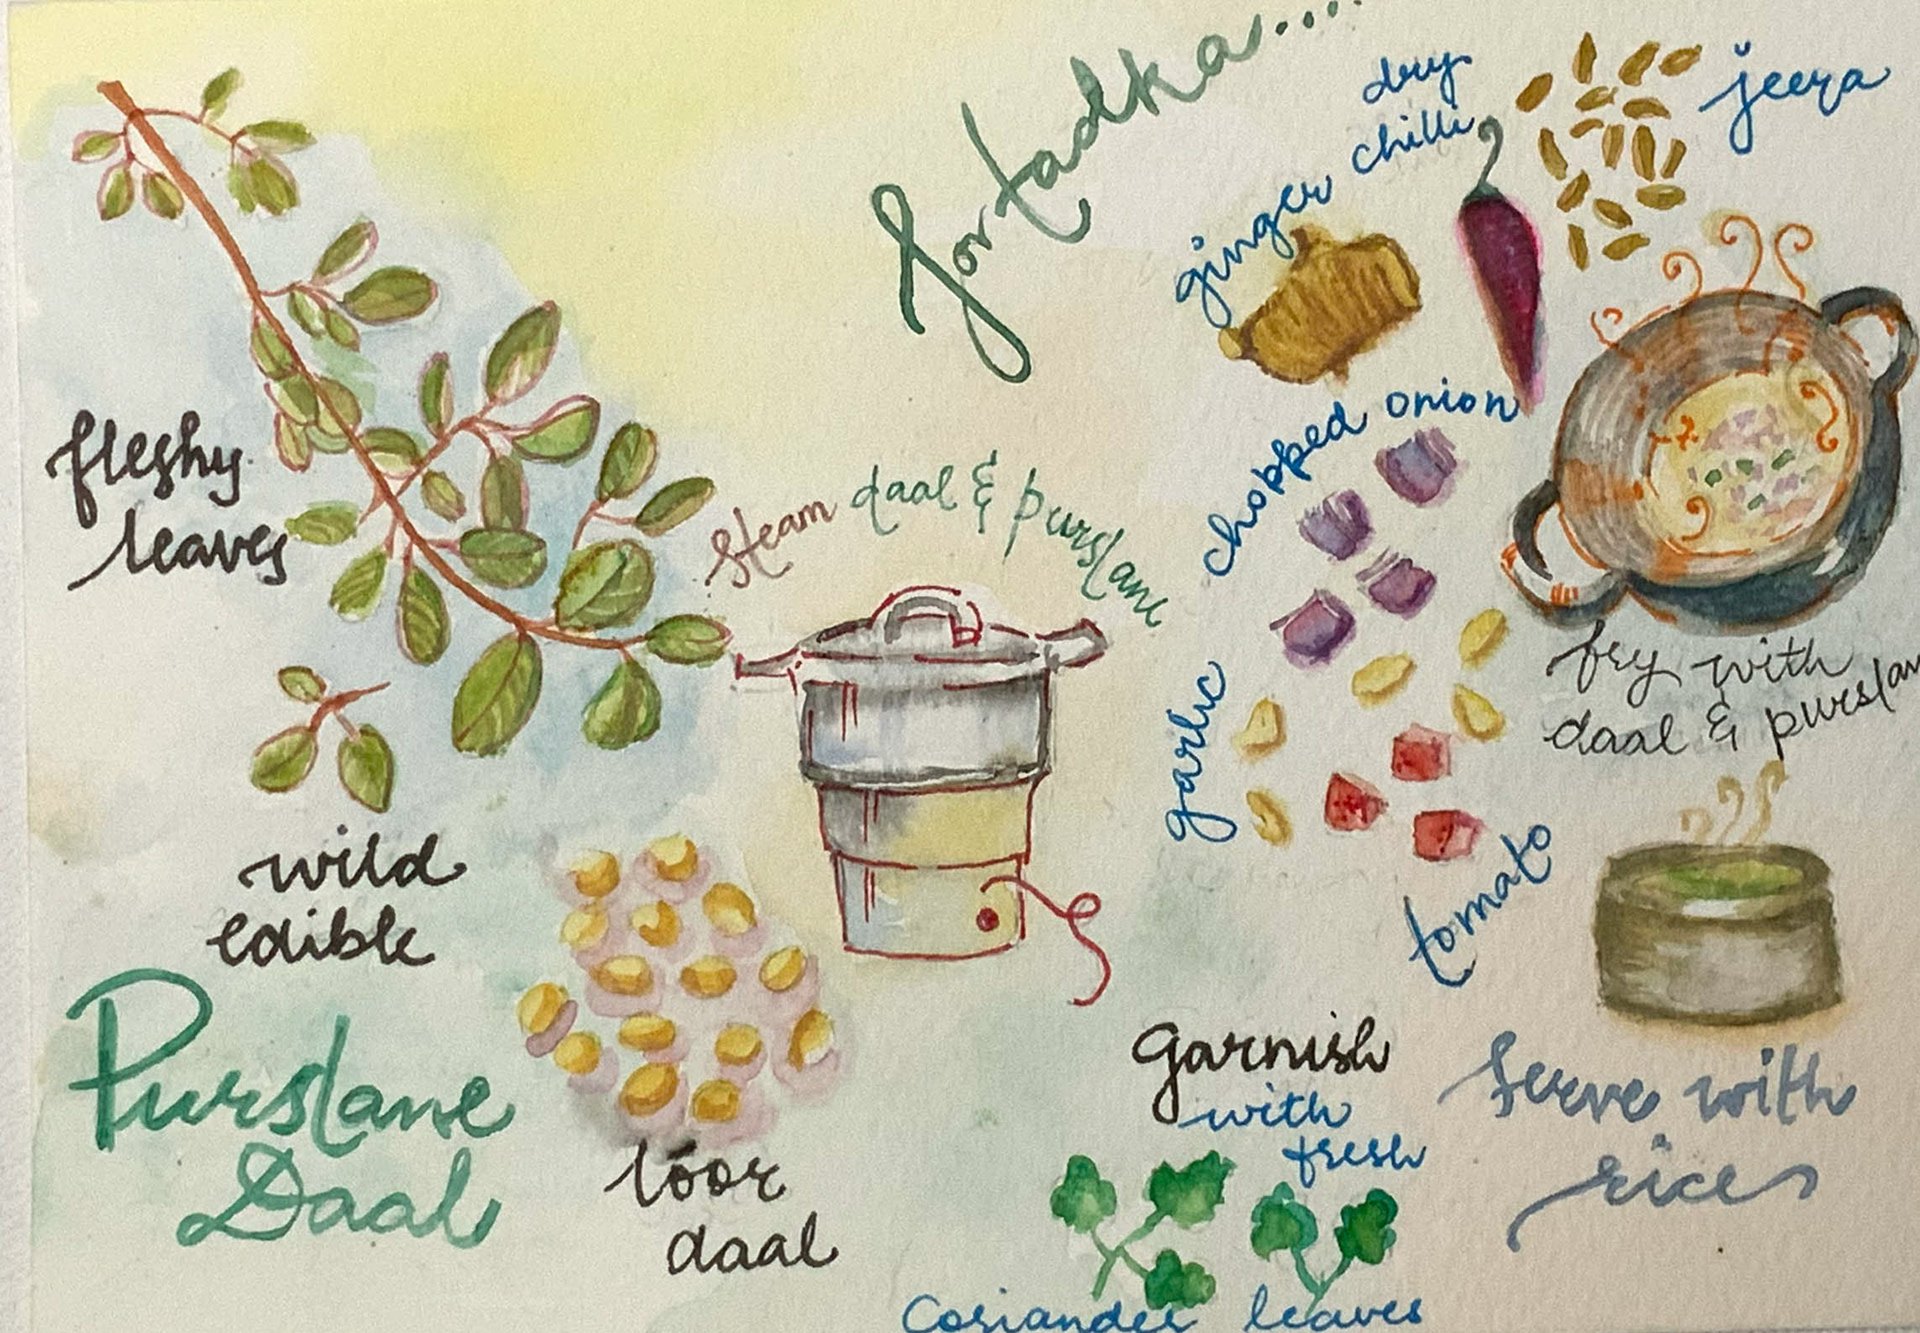 for tadka....
dry
chilli
jeera
ginger
chopped onion
garlic
tomato
fleshy
leaves
steam daal & purslane
fry with
daal & purslan
wild
edible
Purslane
Daal
toor
daal
garnish
with
fresh
coriander leaves
serve with
rice